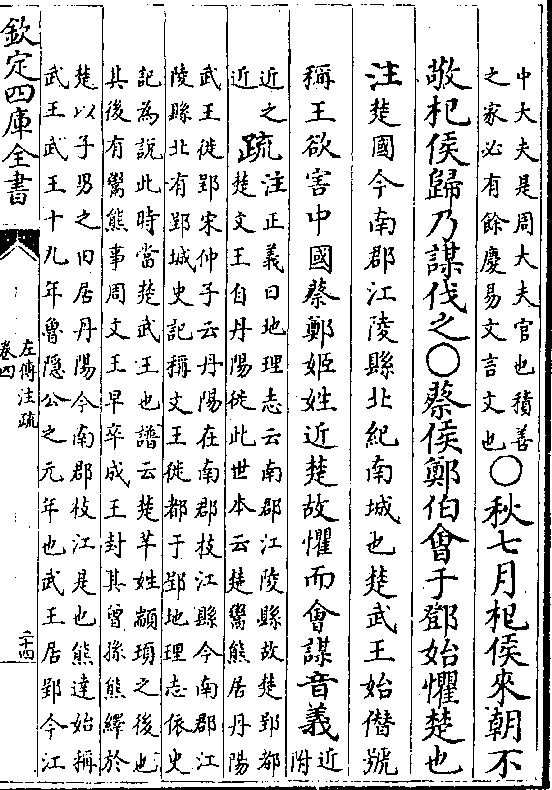 中大夫是周大夫官也積善
之家必有餘慶易文言文也
○秋七月杞侯來朝不
敬杞侯歸乃謀伐之○蔡侯鄭伯會于鄧始懼楚也
注楚國今南郡江陵縣北紀南城也楚武王始僭號
稱王欲害中國蔡鄭姬姓近楚故懼而會謀音義
近附
近之
近
疏
注正義曰地理志云南郡江陵縣故楚郢都
楚文王自丹陽徙此世本云楚鬻熊居丹陽
武王徙郢宋仲子云丹陽在南郡枝江縣今南郡江
陵縣北有郢城史記稱文王徙都于郢地理志依史
記為說此時當楚武王也譜云楚芈姓顓頊之後也
其後有鬻熊事周文王早卒成王封其曾孫熊繹於
楚以子男之田居丹陽今南郡枝江是也熊達始稱
武王武王十九年魯隱公之元年也武王居郢今江
欽定四庫全書
左傳注疏
卷四
二十四